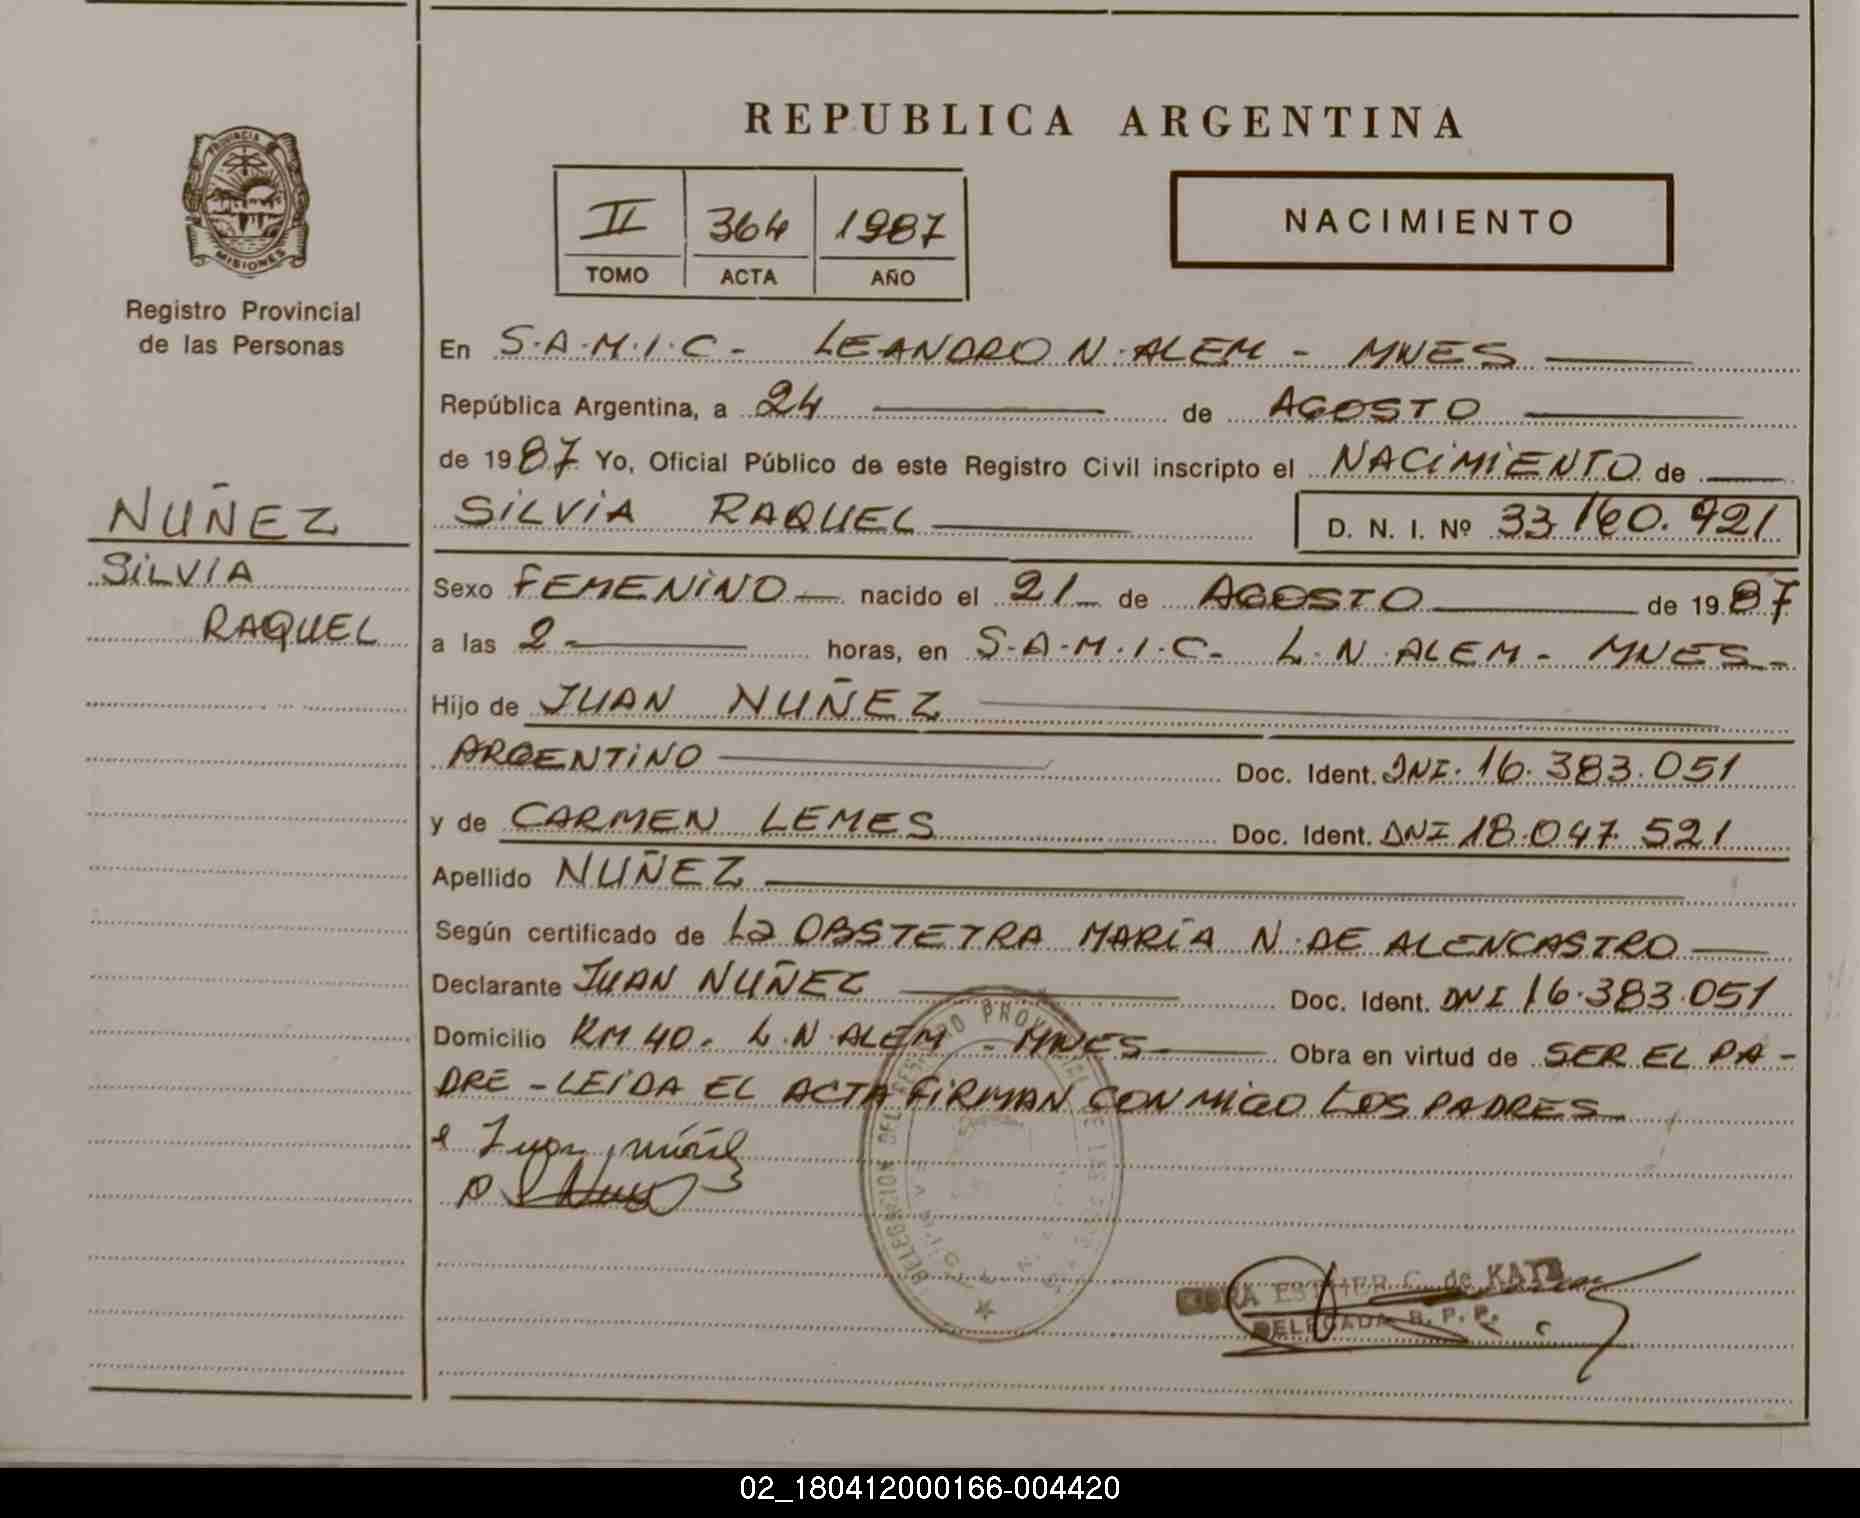 REPUBLICA ARGENTINA
PROVINCIA
MISIONES
Registro Provincial
de las Personas
II 364 1987
TOMO ACTA AÑO
NACIMIENTO
NUÑEZ
SILVIA
RAQUEL
En S.A.M.I.C- LEANDRO N. ALEM - MNES
República Argentina, a 24 de AGOSTO
de 1987 Yo, Oficial Público de este Registro Civil inscripto el NACIMIENTO de
SILVIA RAQUEL D. N. I. Nº 33.160.921
Sexo FEMENINO nacido el 21 de AGOSTO de 1987
a las 2 horas, en S.A.M.I.C- L.N.ALEM- MNES-
Hijo de JUAN NUÑEZ
ARGENTINO Doc. Ident. DNI. 16.383.051
y de CARMEN LEMES Doc. Ident. DNI 18.047.521
Apellido NUÑEZ
Según certificado de La OBSTETRA MARÍA N. DE ALENCASTRO
Declarante JUAN NUÑEZ Doc. Ident. DNI 16.383.051
Domicilio KM 40. L.N.ALEM - MNES Obra en virtud de SER EL PA-
DRE - LEIDA EL ACTA FIRMAN CONMIGO LOS PADRES
DELEGACION DEL REGISTRO PROVINCIAL DE LAS
ESTHER C. de KATZ
DELEGADA R. P. P.
02_180412000166-004420